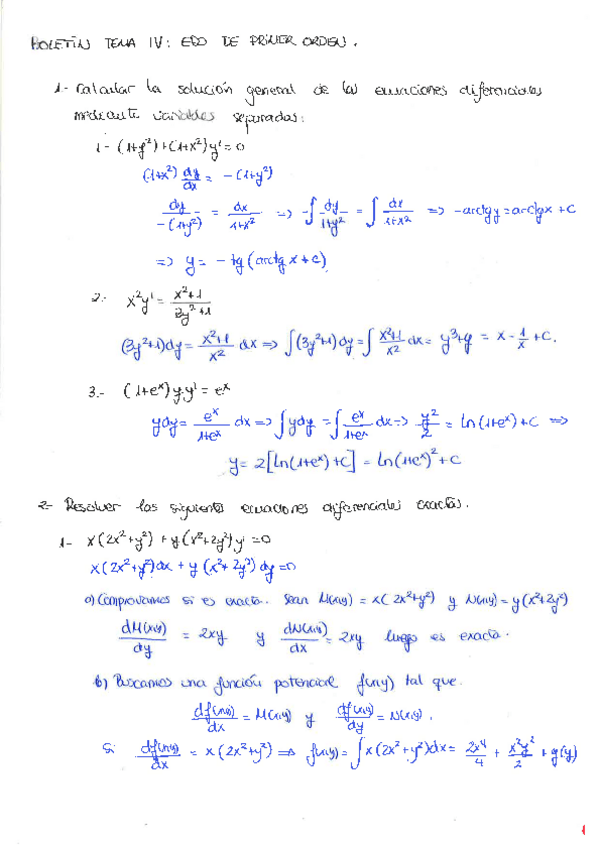 BOLETÍN TEMA IV: EDO DE PRIMER ORDEN.
1- Calcular la solución general de las ecuaciones diferenciales
mediante variables separadas:
1- (1+y²)+(1+x²)y'=0
(1+x²) dy/dx = -(1+y²)
dy/-(1+y²) = dx/1+x² => -∫ dy/1+y² = ∫ dx/1+x² => -arctgy=arctgx+C
=> y= -tg(arctg x+c)
2.- x²y' = x²+1/3y²+1
(3y²+1)dy= x²+1/x² dx => ∫(3y²+1)dy=∫ x²+1/x² dx= y³+y = x - 1/x +C.
3.- (1+eˣ)y.y'=eˣ
ydy= eˣ/1+eˣ dx => ∫ydy=∫ eˣ/1+eˣ dx => y²/2 = ln(1+eˣ)+C =>
y= 2[ln(1+eˣ)+C] = ln(1+eˣ)²+C
2- Resolver las siguientes ecuaciones diferenciales exactas.
1- x(2x²+y²) + y(x²+2y²)y'=0
x(2x²+y²)dx + y(x²+2y²)dy=0
a) Comprovamos si es exacta. Sean M(x,y) = x(2x²+y²) y N(x,y)=y(x²+2y²)
dM(x,y)/dy = 2xy y dN(x,y)/dx = 2xy luego es exacta.
b) Buscamos una función potencial f(x,y) tal que.
df(x,y)/dx = M(x,y) y df(x,y)/dy = N(x,y).
Si df(x,y)/dx = x(2x²+y²) => f(x,y)=∫x(2x²+y²)dx= 2x⁴/4 + x²y²/2 + g(y)